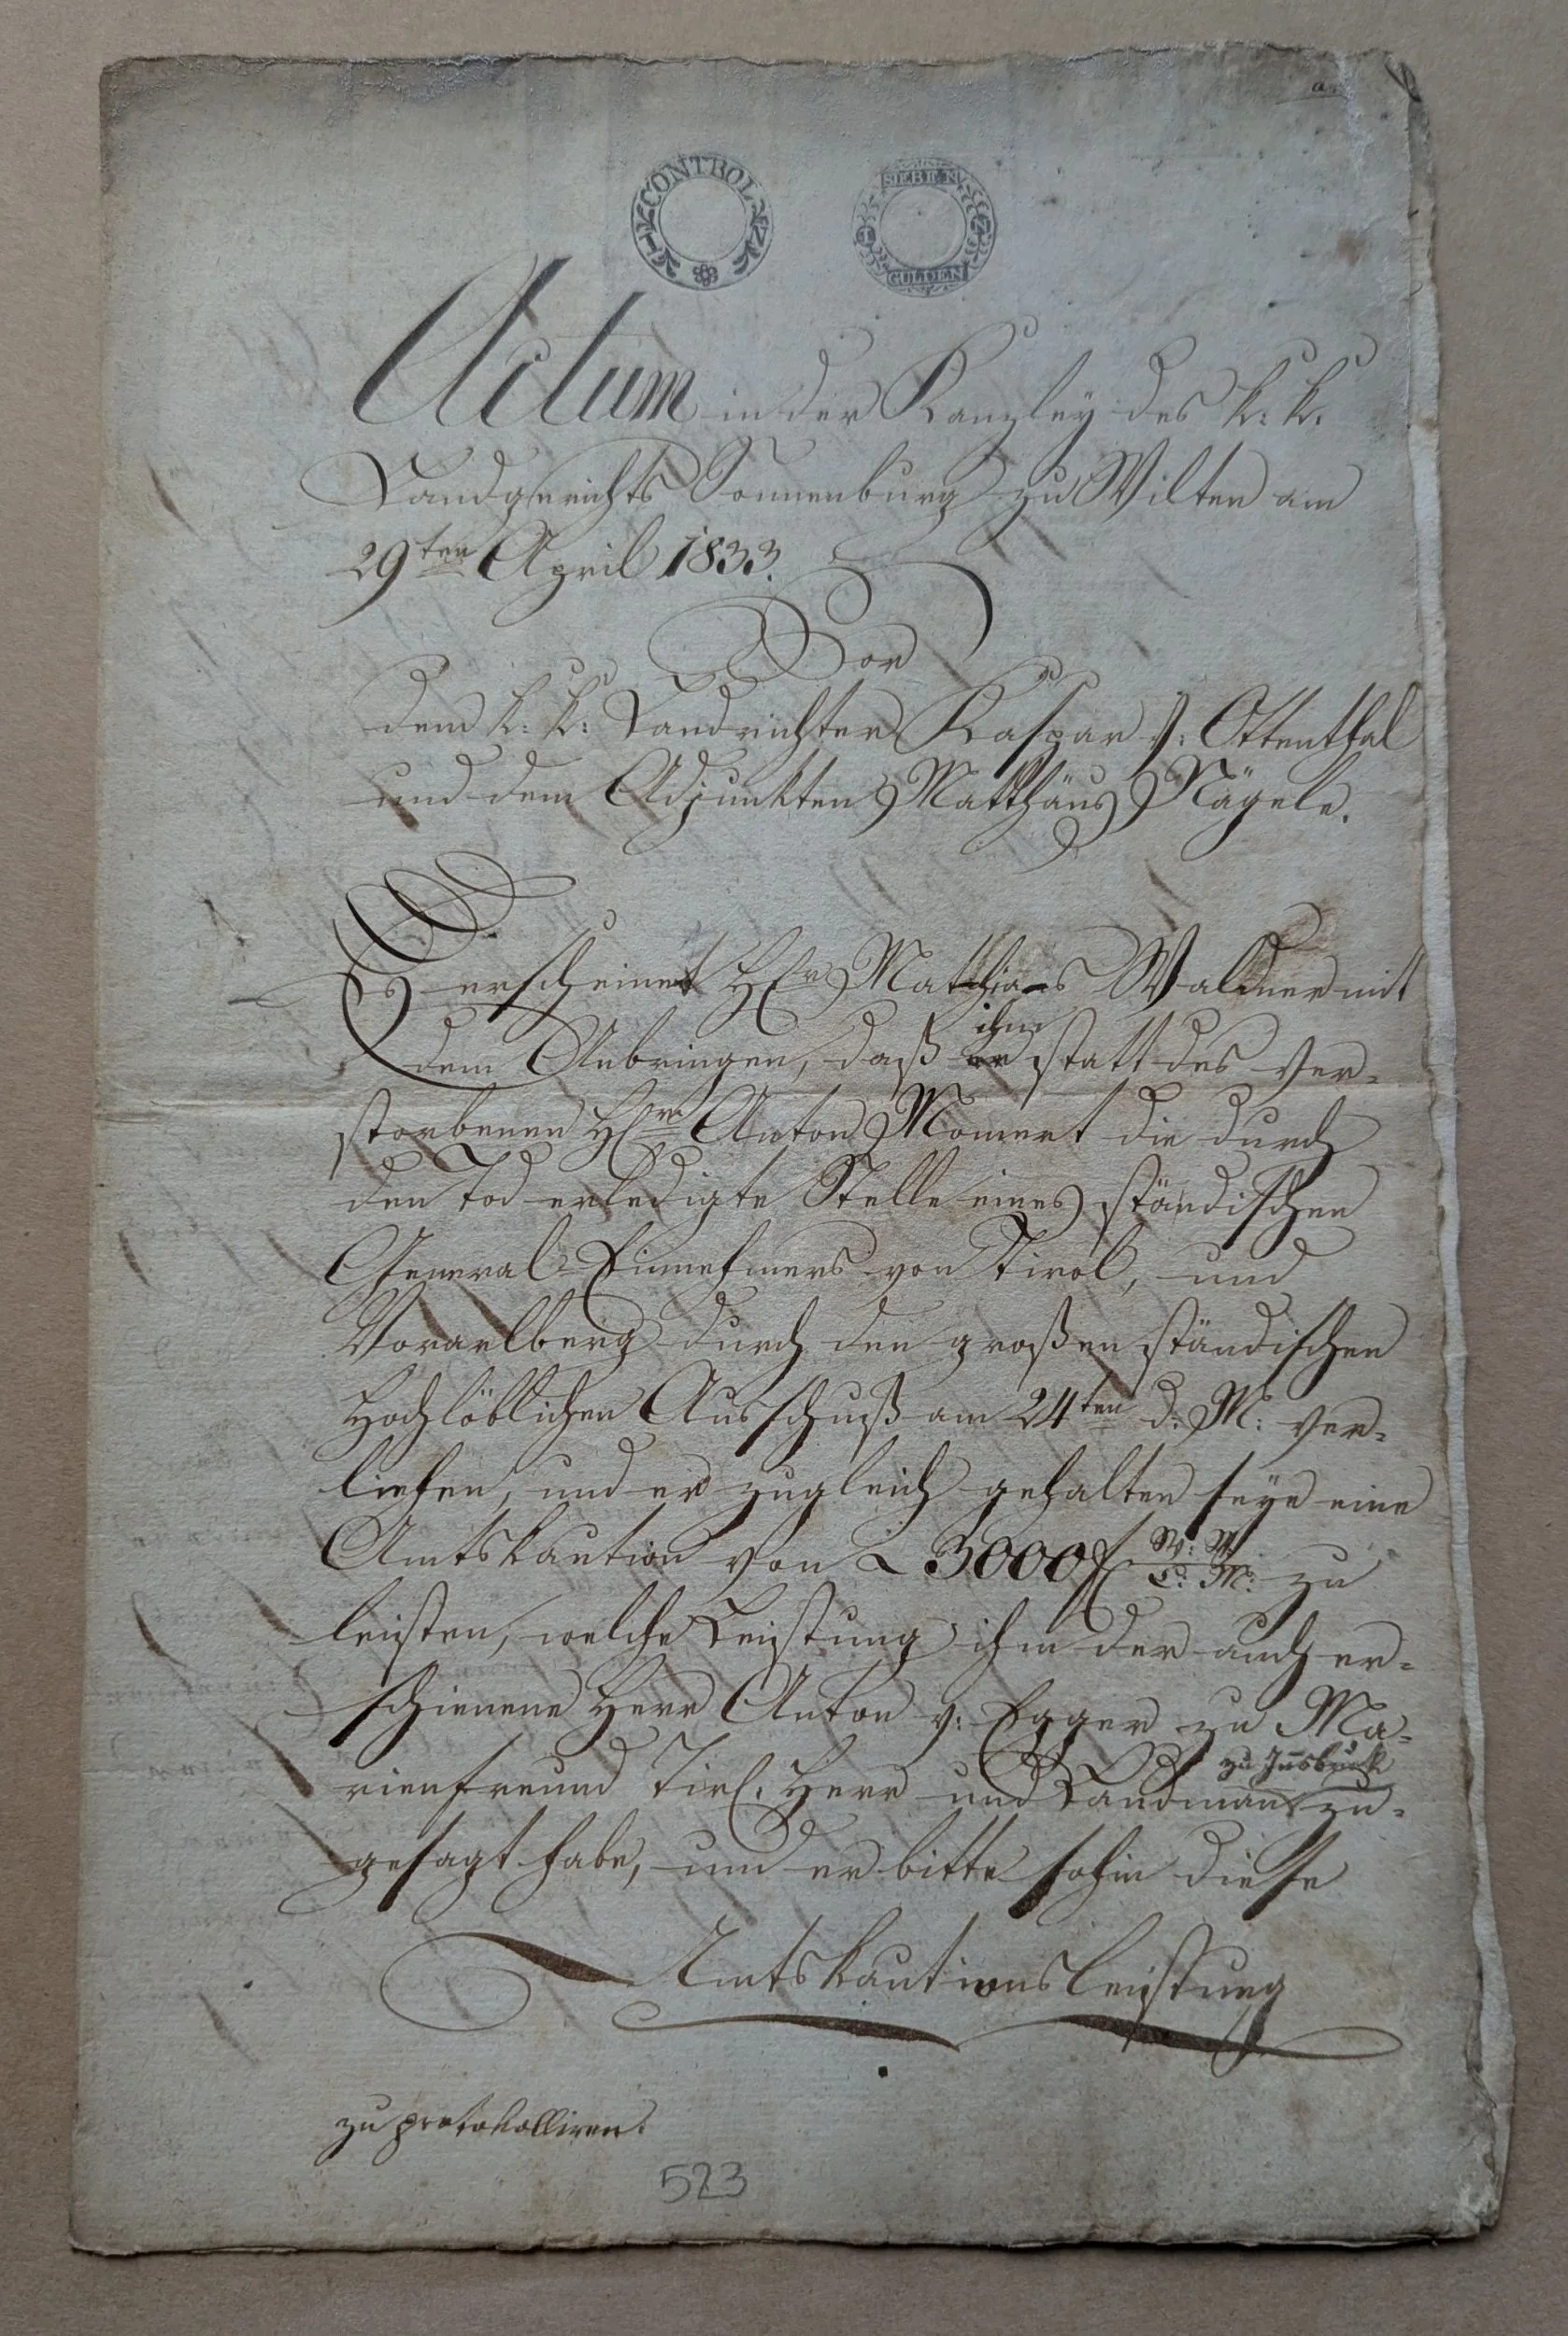 CONTROL
SIEBEN
GULDEN
Actum in der Kanzley des k: k:
Landgerichts Sonnenburg zu Wilten am
29ten April 1833.
Vor
dem k: k: Landrichter Kaspar v: Ottenthal
und dem Adjunkten Matthäus Nägele.
Es erscheinet H(er)r Matthias Waldner mit
ihm
dem Anbringen, daß er statt des ver=
storbenen H(er)rn Anton Momert die durch
den Tod erledigte Stelle eines ständischen
General=Einnehmers von Tirol, und
Vorarlberg durch den großen ständischen
Hochlöblichen Ausschuß am 24ten d: M: ver=
liehen, und er zugleich gehalten seye eine
Amtskaution von 3000 f W: W: C: M: zu
leisten, welche Leistung ihm der auch er=
schienene Herr Anton v: Egger zu Ma=
zu Insbruk
rienfreund Tirl. Herr und Landmann zu=
gesagt habe, und er bitte sohin diese
Amtskautionsleistung
zu protokolliren.
523